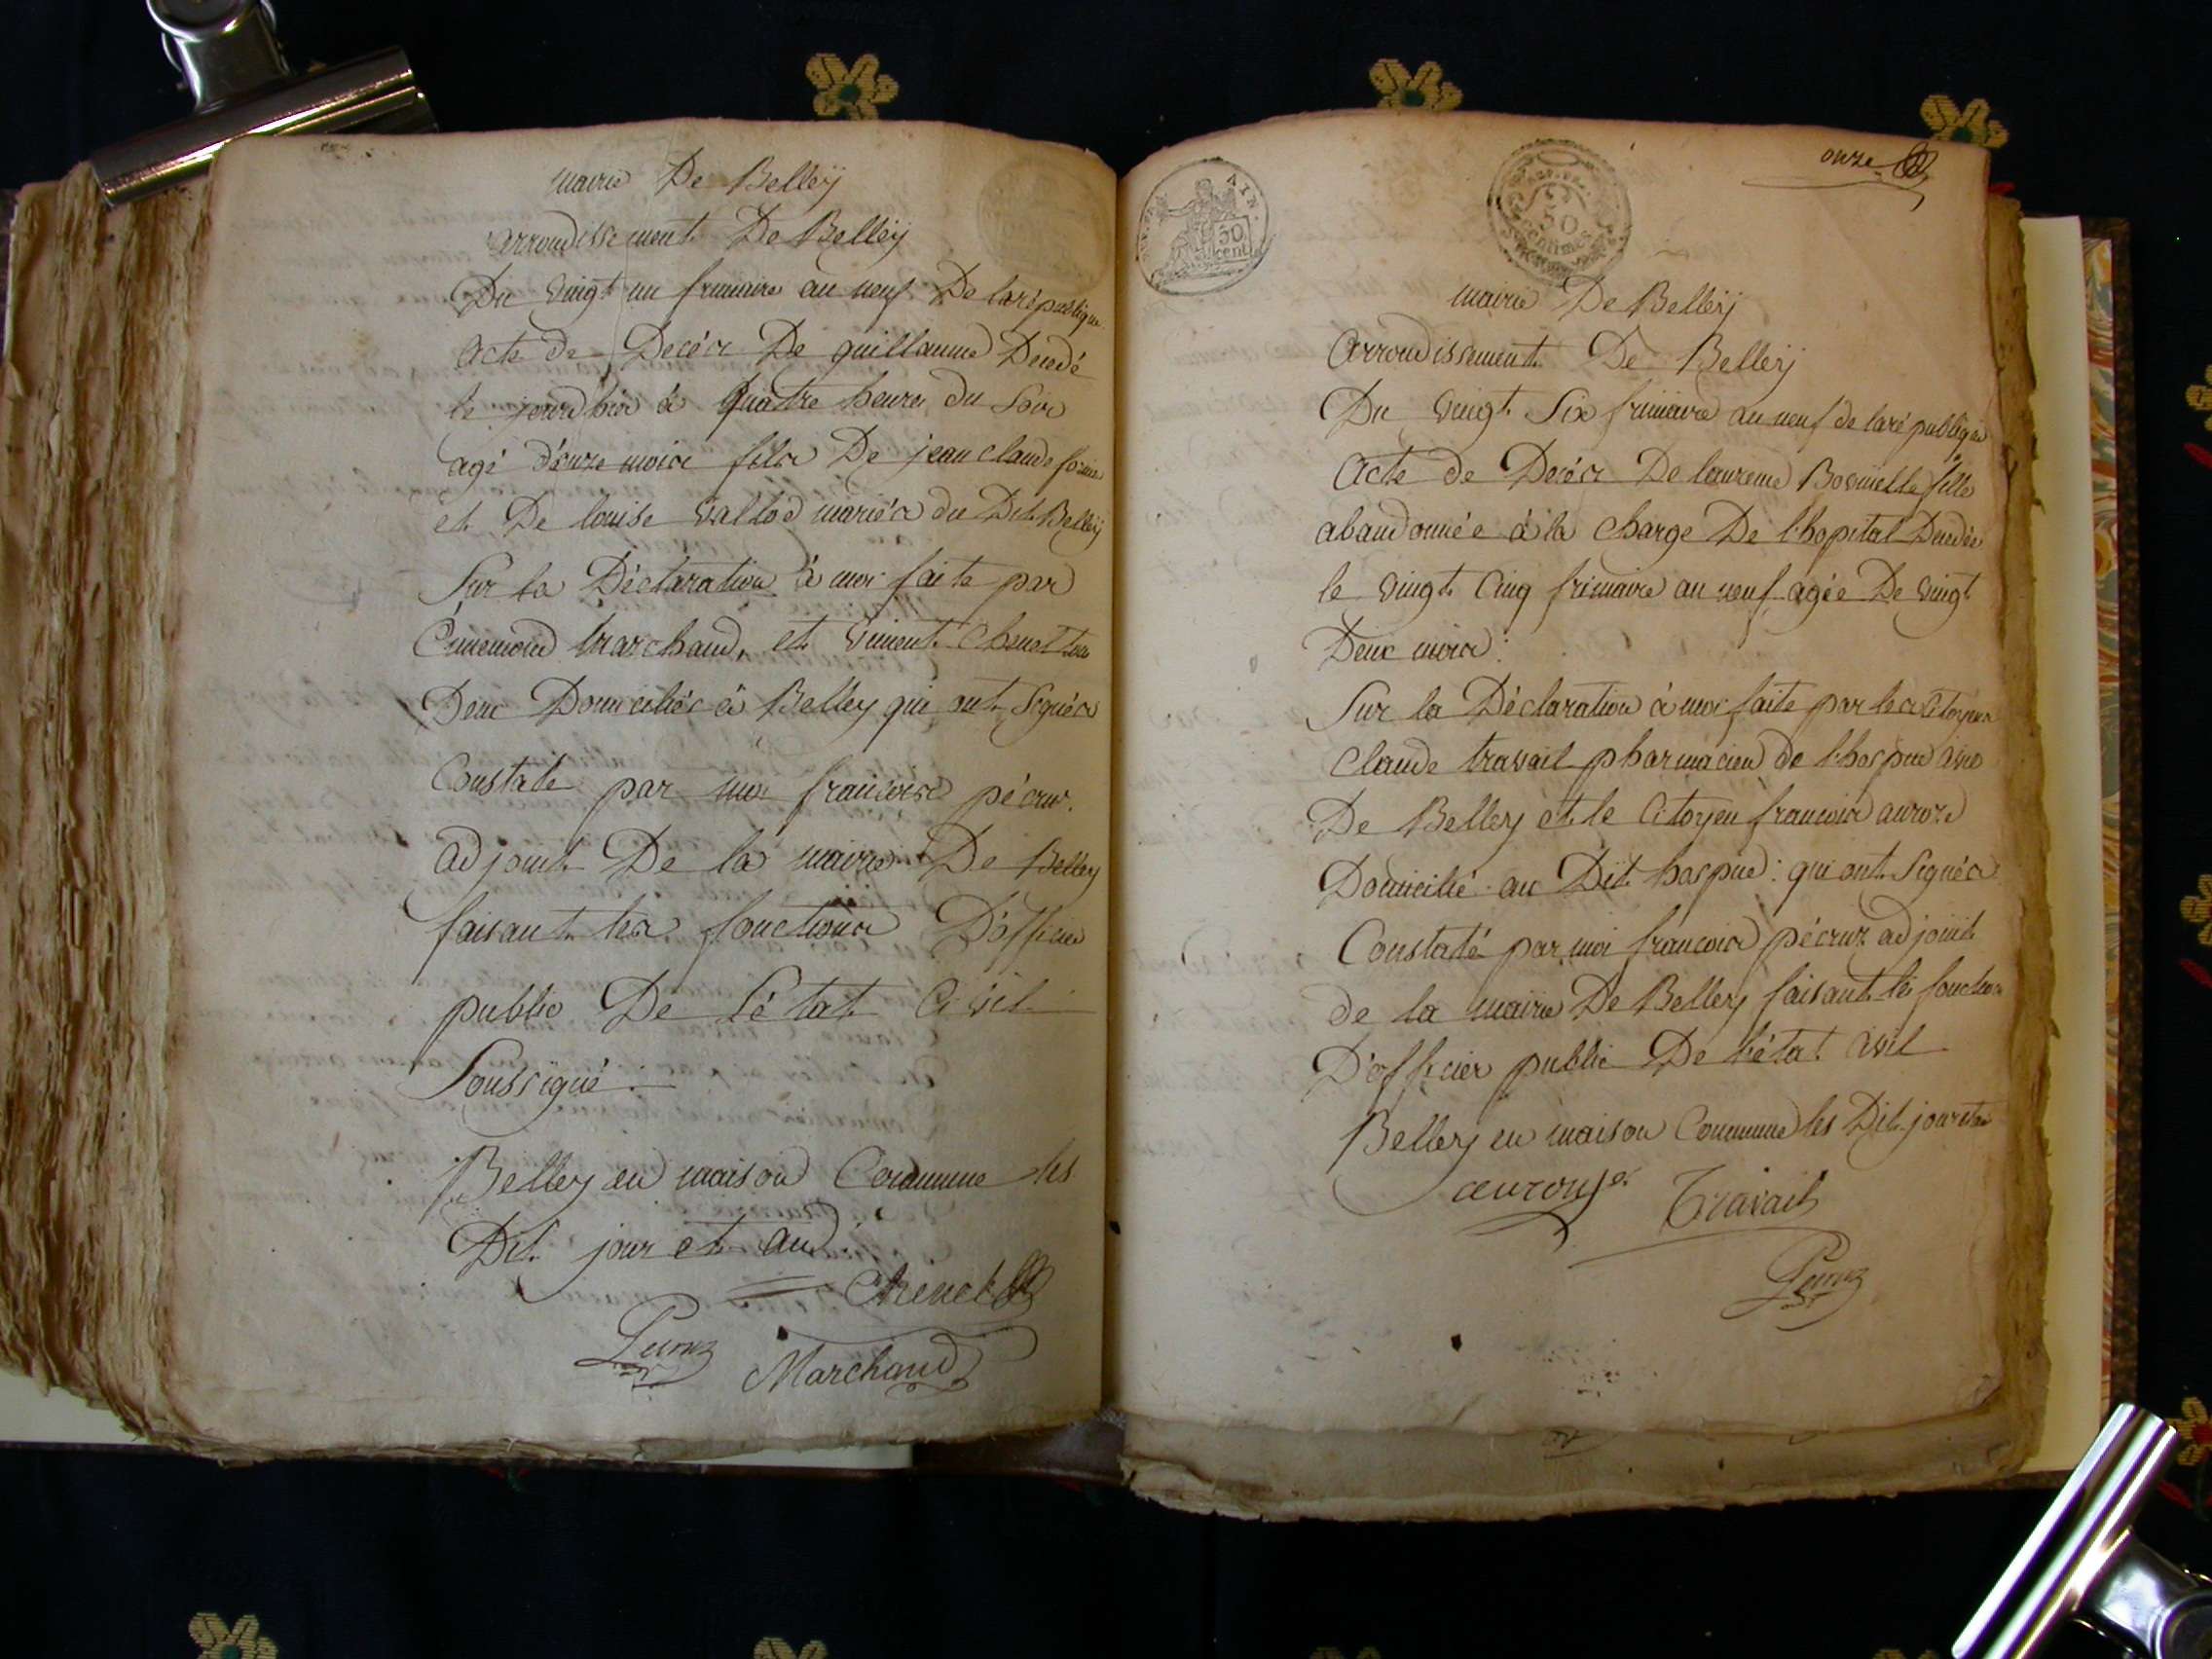 mairie De Belleÿ
arrondissement De Belleÿ
Du vingt un frimaire an neuf De la république
Acte de Décés De guillaume Décédé
le jourdhui à Quatre heures du Soir
agé d'onze mois fils De jean claude
et De louise vallod mariés du Dit Belleÿ
Sur la Déclaration à moi faite par
Ennemond marchand, et vincent
Deux Domiciliés à Belley qui ont Signés
Constaté par moi francois pécruz
adjoint De la mairie De Belley
faisant les fonctions D'officier
public De L'état Civil
Soussigné.
Belley en maison Commune les
Dit jour et an.
Chenel
Marchand
onze
AIN.
50
cent
50
centimes
mairie De Belleÿ
Arrondissement De Belleÿ
Du vingt Six frimaire an neuf de la république
Acte de Décés De laurence fille
abandonnée à la charge De l'hopital Decedée
le vingt Cinq frimaire an neuf agée De vingt
Deux mois:
Sur la Déclaration à moi faite par les citoyens
Claude travail pharmacien de l'hospice civil
De Belley et le Citoyen francois auroze
Domicilié au Dit hospice: qui ont Signés
Constaté par moi francois pécruz adjoint
de la mairie De Belley faisant les fonctions
D'officier public De l'état civil
Belley en maison Commune les Dit jour et an
Travail